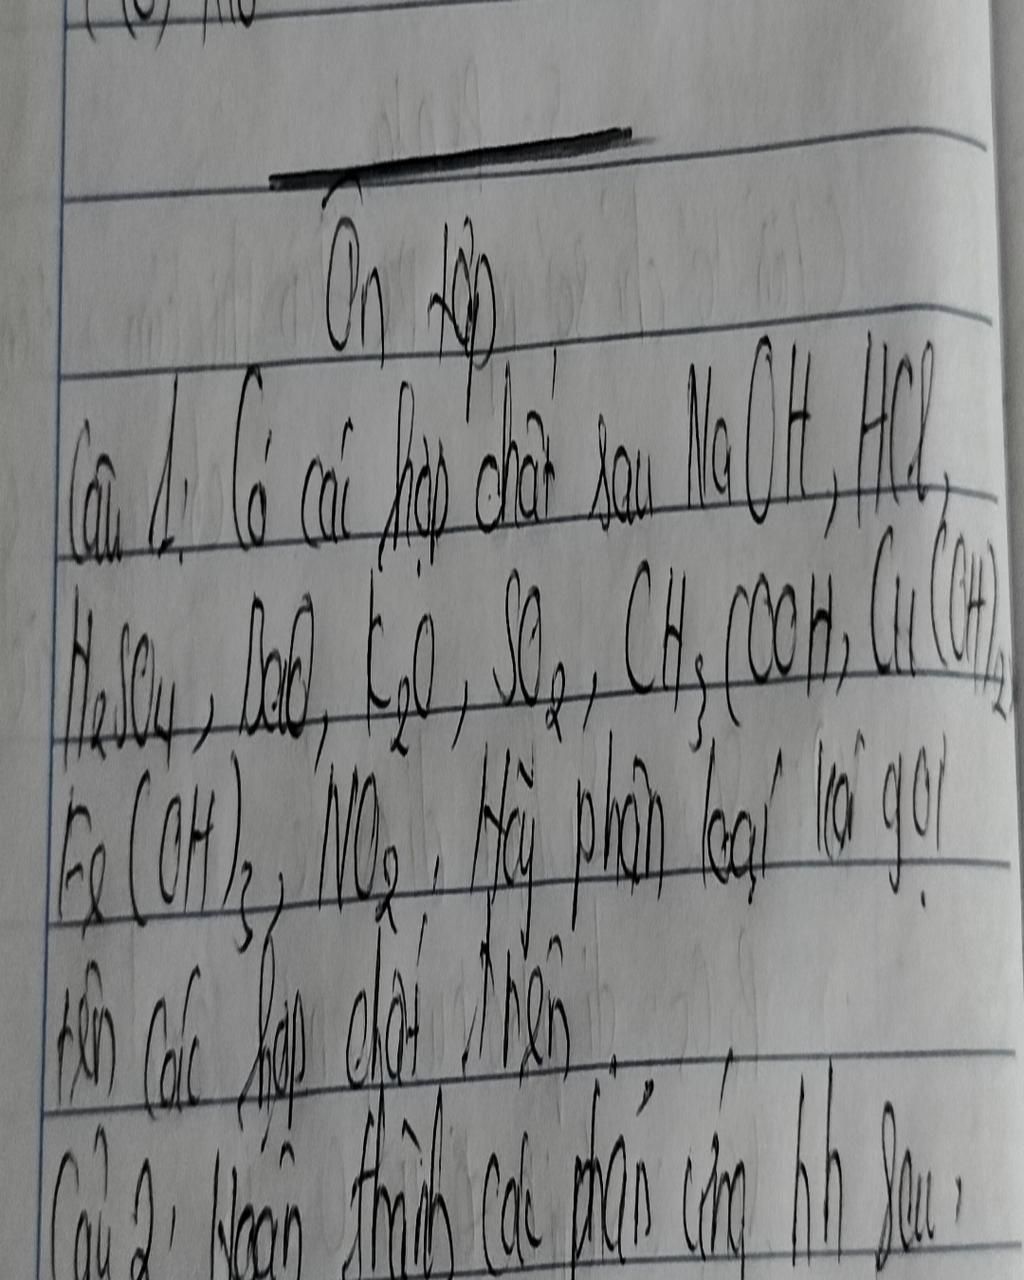 Ôn tập
Câu 1: Có các hợp chất sau NaOH, HCl,
H₂SO₄, BaO, K₂O, SO₂, CH₃COOH, Cu(OH)₂
Fe(OH)₃, NO₂. Hãy phân loại và gọi
tên các hợp chất trên.
Câu 2: Hoàn thành các phản ứng hh sau: